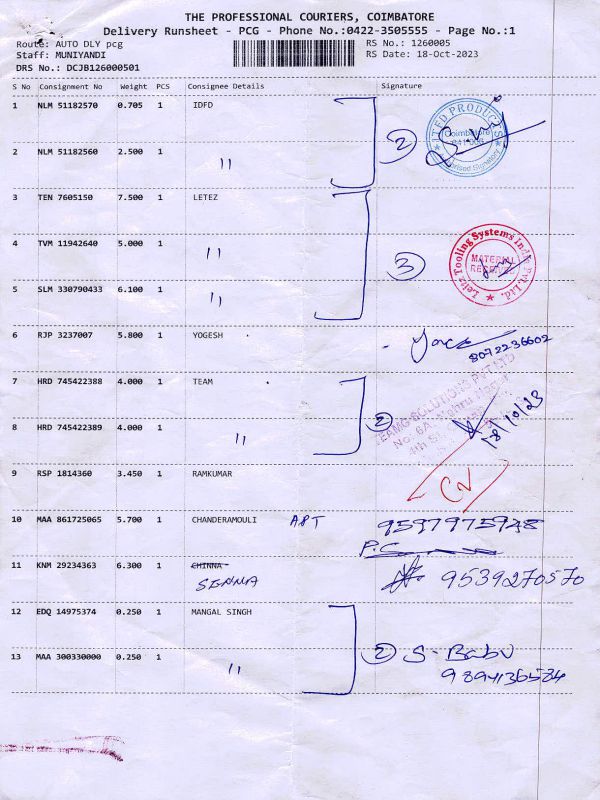 THE PROFESSIONAL COURIERS, COIMBATORE
Delivery Runsheet - PCG - Phone No.:0422-3505555 - Page No.:1
Route: AUTO DLY pcg
Staff: MUNIYANDI
DRS No.: DCJB126000501
RS No.: 1260005
RS Date: 18-Oct-2023
S No Consignment No Weight PCS Consignee Details Signature
1 NLM 51182570 0.705 1 IDFD
2 NLM 51182560 2.500 1 "
2
Coimbatore
3 TEN 7605150 7.500 1 LETEZ
4 TVM 11942640 5.000 1 "
5 SLM 330790433 6.100 1 "
3
Letez Tooling Systems India Pvt. Ltd.
MATERIAL
RECEIVED
6 RJP 3237007 5.800 1 YOGESH
8072236602
7 HRD 745422388 4.000 1 TEAM
8 HRD 745422389 4.000 1 "
2
TEAMG SOLUTIONS PVT LTD
18/10/23
9 RSP 1814360 3.450 1 RAMKUMAR
10 MAA 861725065 5.700 1 CHANDERAMOULI APT
P.C
11 KNM 29234363 6.300 1 CHINNA
SENNA
9539270570
12 EDQ 14975374 0.250 1 MANGAL SINGH
13 MAA 300330000 0.250 1 "
2 S-Babu
9894136584